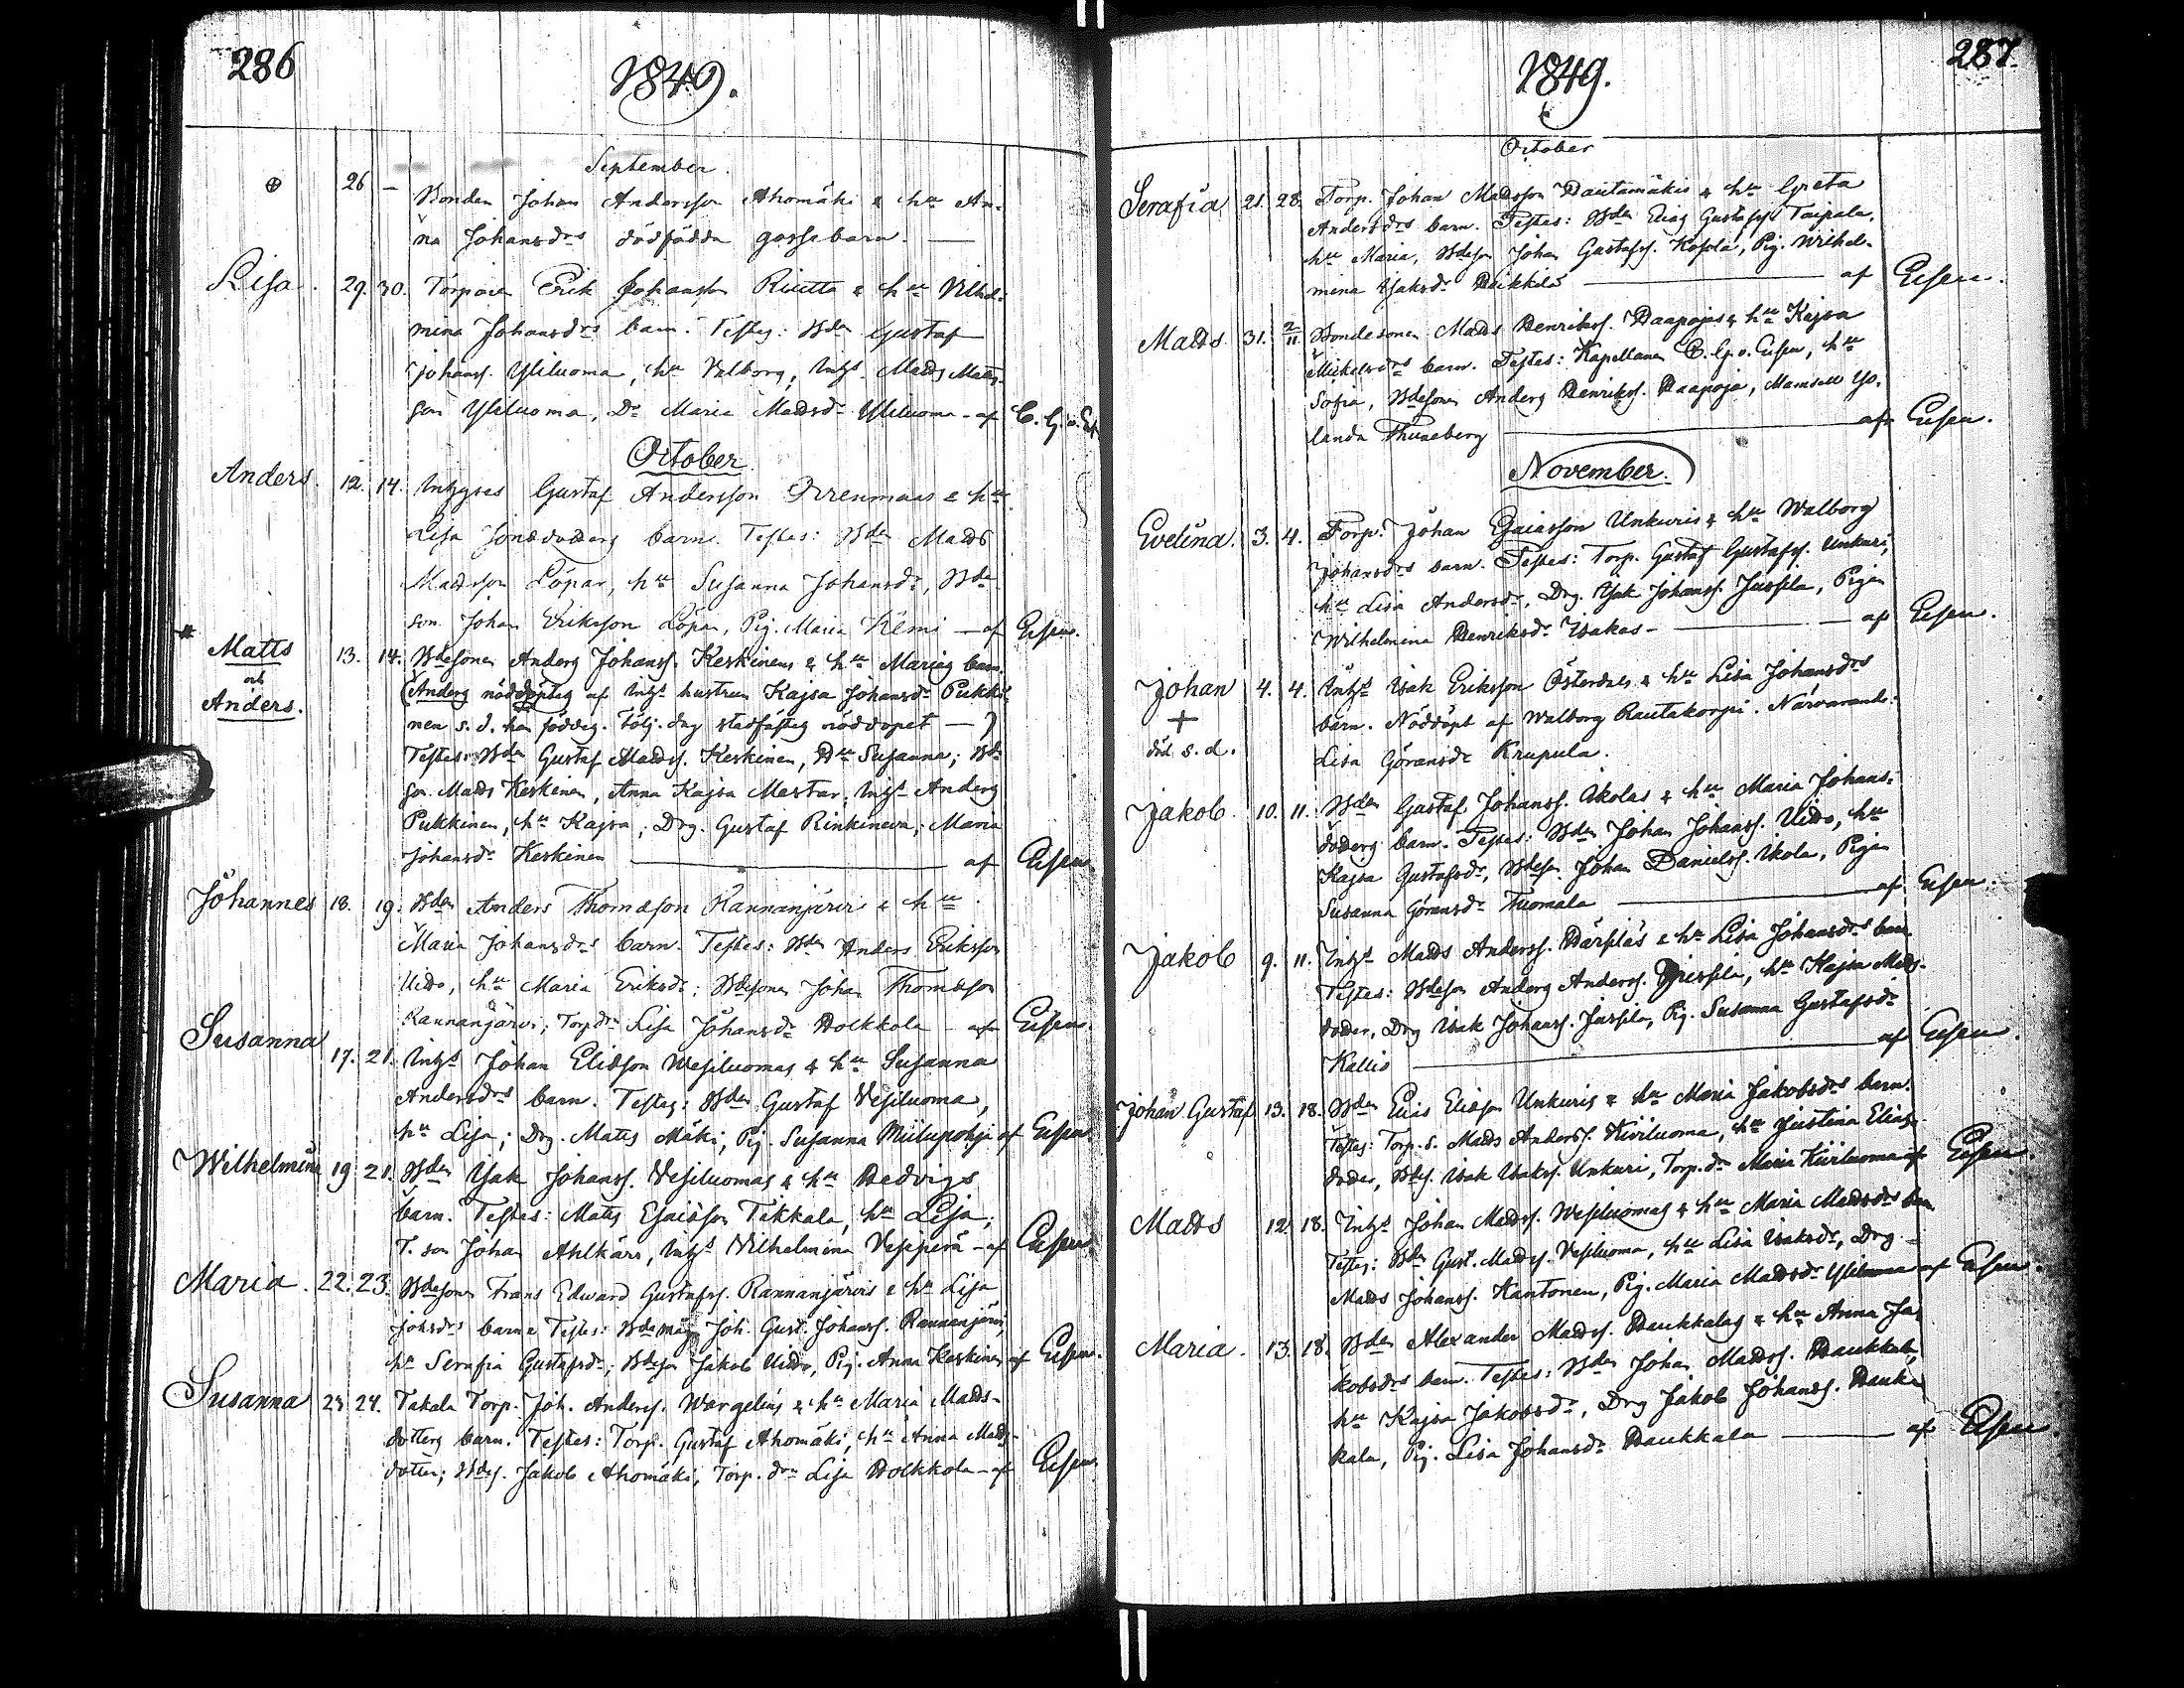 286
1849.
September.
⊕ 26 – Bonden Johan Andersson Ahomäki & hu An-
na Johansdrs dödfödda gossebarn. —
Lisa. 29. 30. Torparen Erik Johansson Riutta & hu Vilhel-
mina Johansdrs barn. Testes: Bden Gustaf
Johanss. Yliluoma, hu Valborg; Inhs Matts Matts-
son Yliluoma, Dr Maria Mattsdr Yliluoma – af C. G. v. Es.
October
Anders. 12. 14. Inhyses Gustaf Andersson Orrenmaas & hu
Lisa Jonædotters barn. Testes: Bden Matts
Mattsson Löpar, hu Susanna Johansdr, Bde
son Johan Eriksson Löpar, Pig. Maria Kémi — af Essen.
Matts och Anders. 13. 14. Bdesonen Anders Johanss. Keskinens & hu Marias barn.
(Anders nöddöptes af Inhs hustrun Kajsa Johansdr Pukki-
nen s. d. han föddes. Följ. dag stadfästes nöddopet —)
Testes: Bden Gustaf Mattss. Keskinen, Hu Susanna; Bde
son Matts Keskinen, Anna Kajsa Mestar; Inhs Anders
Pukkinen, hu Kajsa; Drg. Gustaf Rinkineva; Maria
Johansdr Keskinen — af Essen
Johannes 18. 19. Bden Anders Thomasson Rannanjärvis & hu
Maria Johansdrs barn. Testes: Bden Anders Eriksson
Uitto, hu Maria Eriksdr; Bdesonen Johan Thomasson
Rannanjärvi; Torpdr Lisa Johansdr Holkkola – af Essen.
Susanna 17. 21. Inhs Johan Eliasson Wesiluomas & hu Susanna
Andersdrs barn. Testes: Bden Gustaf Vesiluoma,
hu Lisa; Drg. Matts Mäki; Pig. Susanna Miilupohja af Essen
Wilhelmina 19. 21. Bden Isak Johanss. Vesiluomas & hu Hedvigs
barn. Testes: Matts Esaiasson Tikkala, hu Lisa;
T. son Johan Ahlkärr, Inhs Vilhelmina Vesperä – af Essen
Maria. 22. 23. Bdesonen Frans Edvard Gustafss. Rannanjärvis & hu Lisa
Johsdrs barn. Testes: Bdemåg Joh. Gust. Johanss. Rannanjärvi,
hu Serafia Gustafsdr; Bdeson Jakob Uitto, Pig. Anna Keskinen af Essen.
Susanna 23. 24. Takala Torp. Joh. Anderss. Wargelins & hu Maria Matts-
dotters barn. Testes: Torp. Gustaf Ahomäki, hu Anna Matts-
dotter; Bdes. Jakob Ahomäki, Torp. dr Lisa Holkkola – af Essen.
287.
1849.
October
Serafia 21. 28. Torp. Johan Mattsson Hautamäkis & hu Greta
Andersdrs barn. Testes: Bden Elias Gustafss. Taipale,
hu Maria, Bdeson Johan Gustafss. Koskela, Pig. Wilhel-
mina Isaksdr Heikkilä — af Essen.
Matts. 31. 2/11 Bondesonen Matts Henrikss. Haapojas & hu Kajsa
Mickelsdrs barn. Testes: Kapellanen C. G. v. Essen, hu
Sofia, Bdesonen Anders Henrikss. Haapoja, Mamsell Yo-
landa Thuneberg — af Essen.
November.
Evelina. 3. 4. Torp. Johan Esaiasson Unkuris & hu Walborg
Johansdrs barn. Testes: Torp. Gustaf Gustafss. Unkuri,
hu Lisa Andersdr, Drg. Isak Johanss. Jussila, Pigan
Wilhelmina Henriksdr Isakas – — af Essen.
Johan + död s. d. 4. 4. Inhs Isak Eriksson Österdals & hu Lisa Johansdrs
barn. Nöddöpt af Walborg Rautakorpi. Närvarande:
Lisa Göransdr Krupula.
Jakob. 10. 11. Bden Gustaf Johanss. Ikolas & hu Maria Johans-
dotters barn. Testes: Bden Johan Johanss. Uitto, hu
Kajsa Gustafsdr, Bdeson Johan Danielss. Ikola, Pigan
Susanna Göransdr Tuomala — af Essen.
Jakob 9. 11. Inhs Matts Anderss. Härsiläs & hu Lisa Johansdrs barn.
Testes: Bdeson Anders Anderss. Yrjesila, hu Kajsa Matts-
dotter, Drg Isak Johanss. Jussila, Pig. Susanna Gustafsdr
Kallio — af Essen.
Johan Gustaf 13. 18. Bden Elias Eliasson Unkuris & hu Maria Jakobsdrs barn.
Testes: Torp. s. Matts Anderss. Kiviluoma, hu Justina Elias-
dotter, Bdes. Isak Isakss. Unkuri, Torp. dr Maria Kiviluoma af Essen.
Matts 12. 18. Inhs Johan Mattss. Wesiluomas & hu Maria Mattsdrs barn
Testes: Bden Gust. Mattss. Vesiluoma, hu Lisa Isaksdr, Drg
Matts Johanss. Kantonen, Pig. Maria Mattsdr Yliluoma af Essen.
Maria. 13. 18. Bden Alexander Mattss. Haukkalas & hu Anna Ja-
kobsdrs barn. Testes: Bden Johan Mattss. Haukkala,
hu Kajsa Jakobsdr, Drg Jakob Johanss. Hauk-
kala, Pig. Lisa Johansdr Haukkala — af Essen.